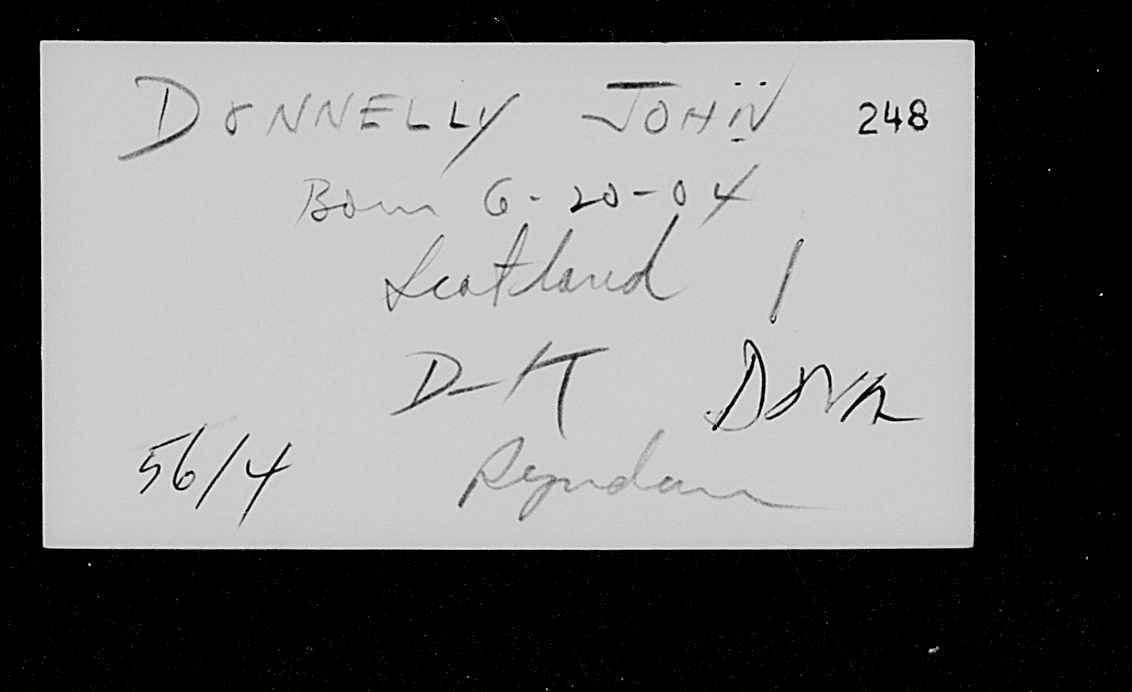 DONNELLY JOHN 248
Born 6-20-04
Scotland 1
D-KT
56/4 Ryndam